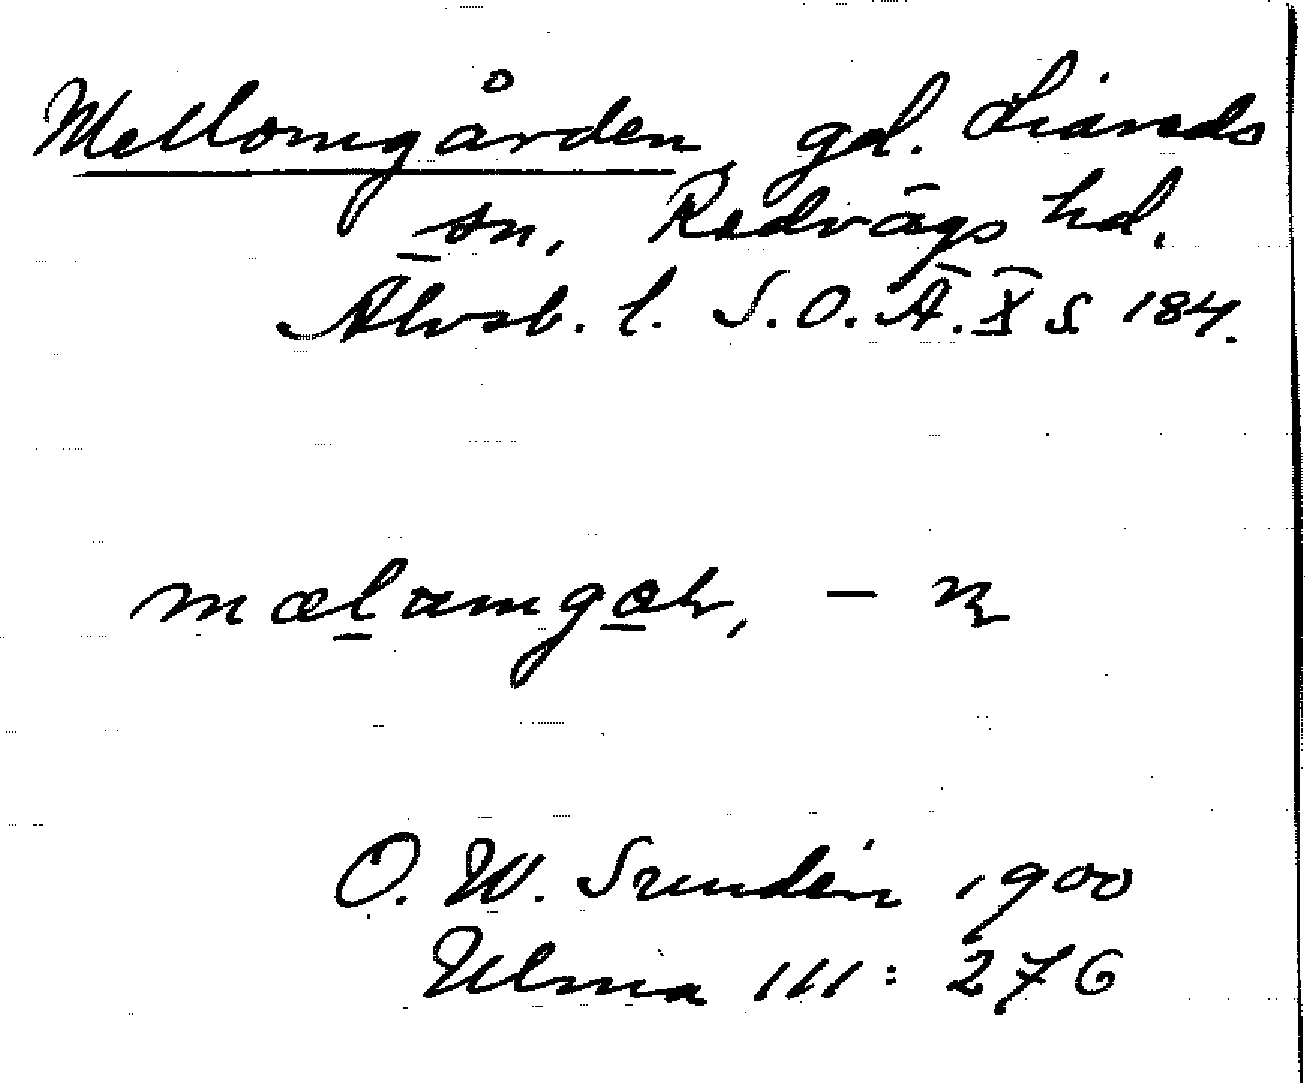 Mellomgården gd. Liareds
sn, Redvägs hd.
Älvsb. l. S.O.Ä. X S 184.
mælamgɑh, – n
O. W. Sundén 1900
Ulma 111: 276